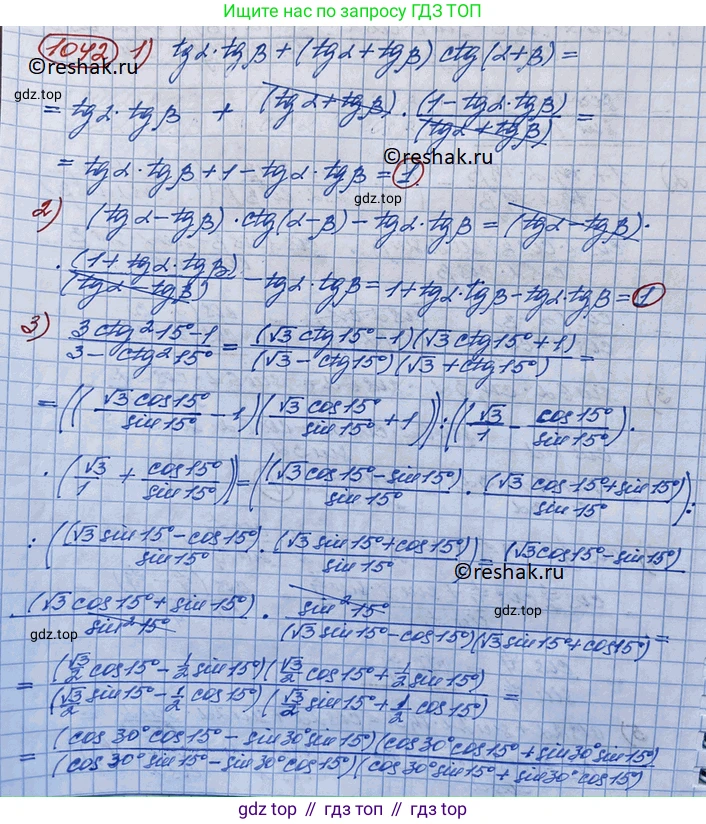 Ищите нас по запросу ГДЗ ТОП
1042 1) tgα·tgβ + (tgα + tgβ) ctg(α+β) =
©reshak.ru
gdz.top
= tgα·tgβ + (tgα + tgβ) · (1 - tgα·tgβ)/(tgα + tgβ) =
©reshak.ru
= tgα·tgβ + 1 - tgα·tgβ = 1.
gdz.top
2) (tgα - tgβ)·ctg(α-β) - tgα·tgβ = (tgα - tgβ)·
· (1 + tgα·tgβ)/(tgα - tgβ) - tgα·tgβ = 1 + tgα·tgβ - tgα·tgβ = 1
3) (3ctg²15° - 1)/(3 - ctg²15°) = (√3 ctg15° - 1)(√3 ctg15° + 1)/(√3 - ctg15°)(√3 + ctg15°) =
= ((√3 cos15°/sin15° - 1)(√3 cos15°/sin15° + 1)) : ((√3/1 - cos15°/sin15°)·
· (√3/1 + cos15°/sin15°)) = ((√3 cos15° - sin15°)/sin15° · (√3 cos15° + sin15°)/sin15°) :
: ((√3 sin15° - cos15°)/sin15° · (√3 sin15° + cos15°)/sin15°) = (√3 cos15° - sin15°)
©reshak.ru
(√3 cos15° + sin15°)/sin²15° · sin²15°/(√3 sin15° - cos15°)(√3 sin15° + cos15°) =
gdz.top
gdz.top
= (√3/2 cos15° - 1/2 sin15°)(√3/2 cos15° + 1/2 sin15°)/(√3/2 sin15° - 1/2 cos15°)(√3/2 sin15° + 1/2 cos15°) =
= (cos30°cos15° - sin30sin15°)(cos30°cos15° + sin30°sin15°)/(cos30°sin15° - sin30°cos15°)(cos30°sin15° + sin30°cos15°)
gdz.top // гдз.топ // gdz.top